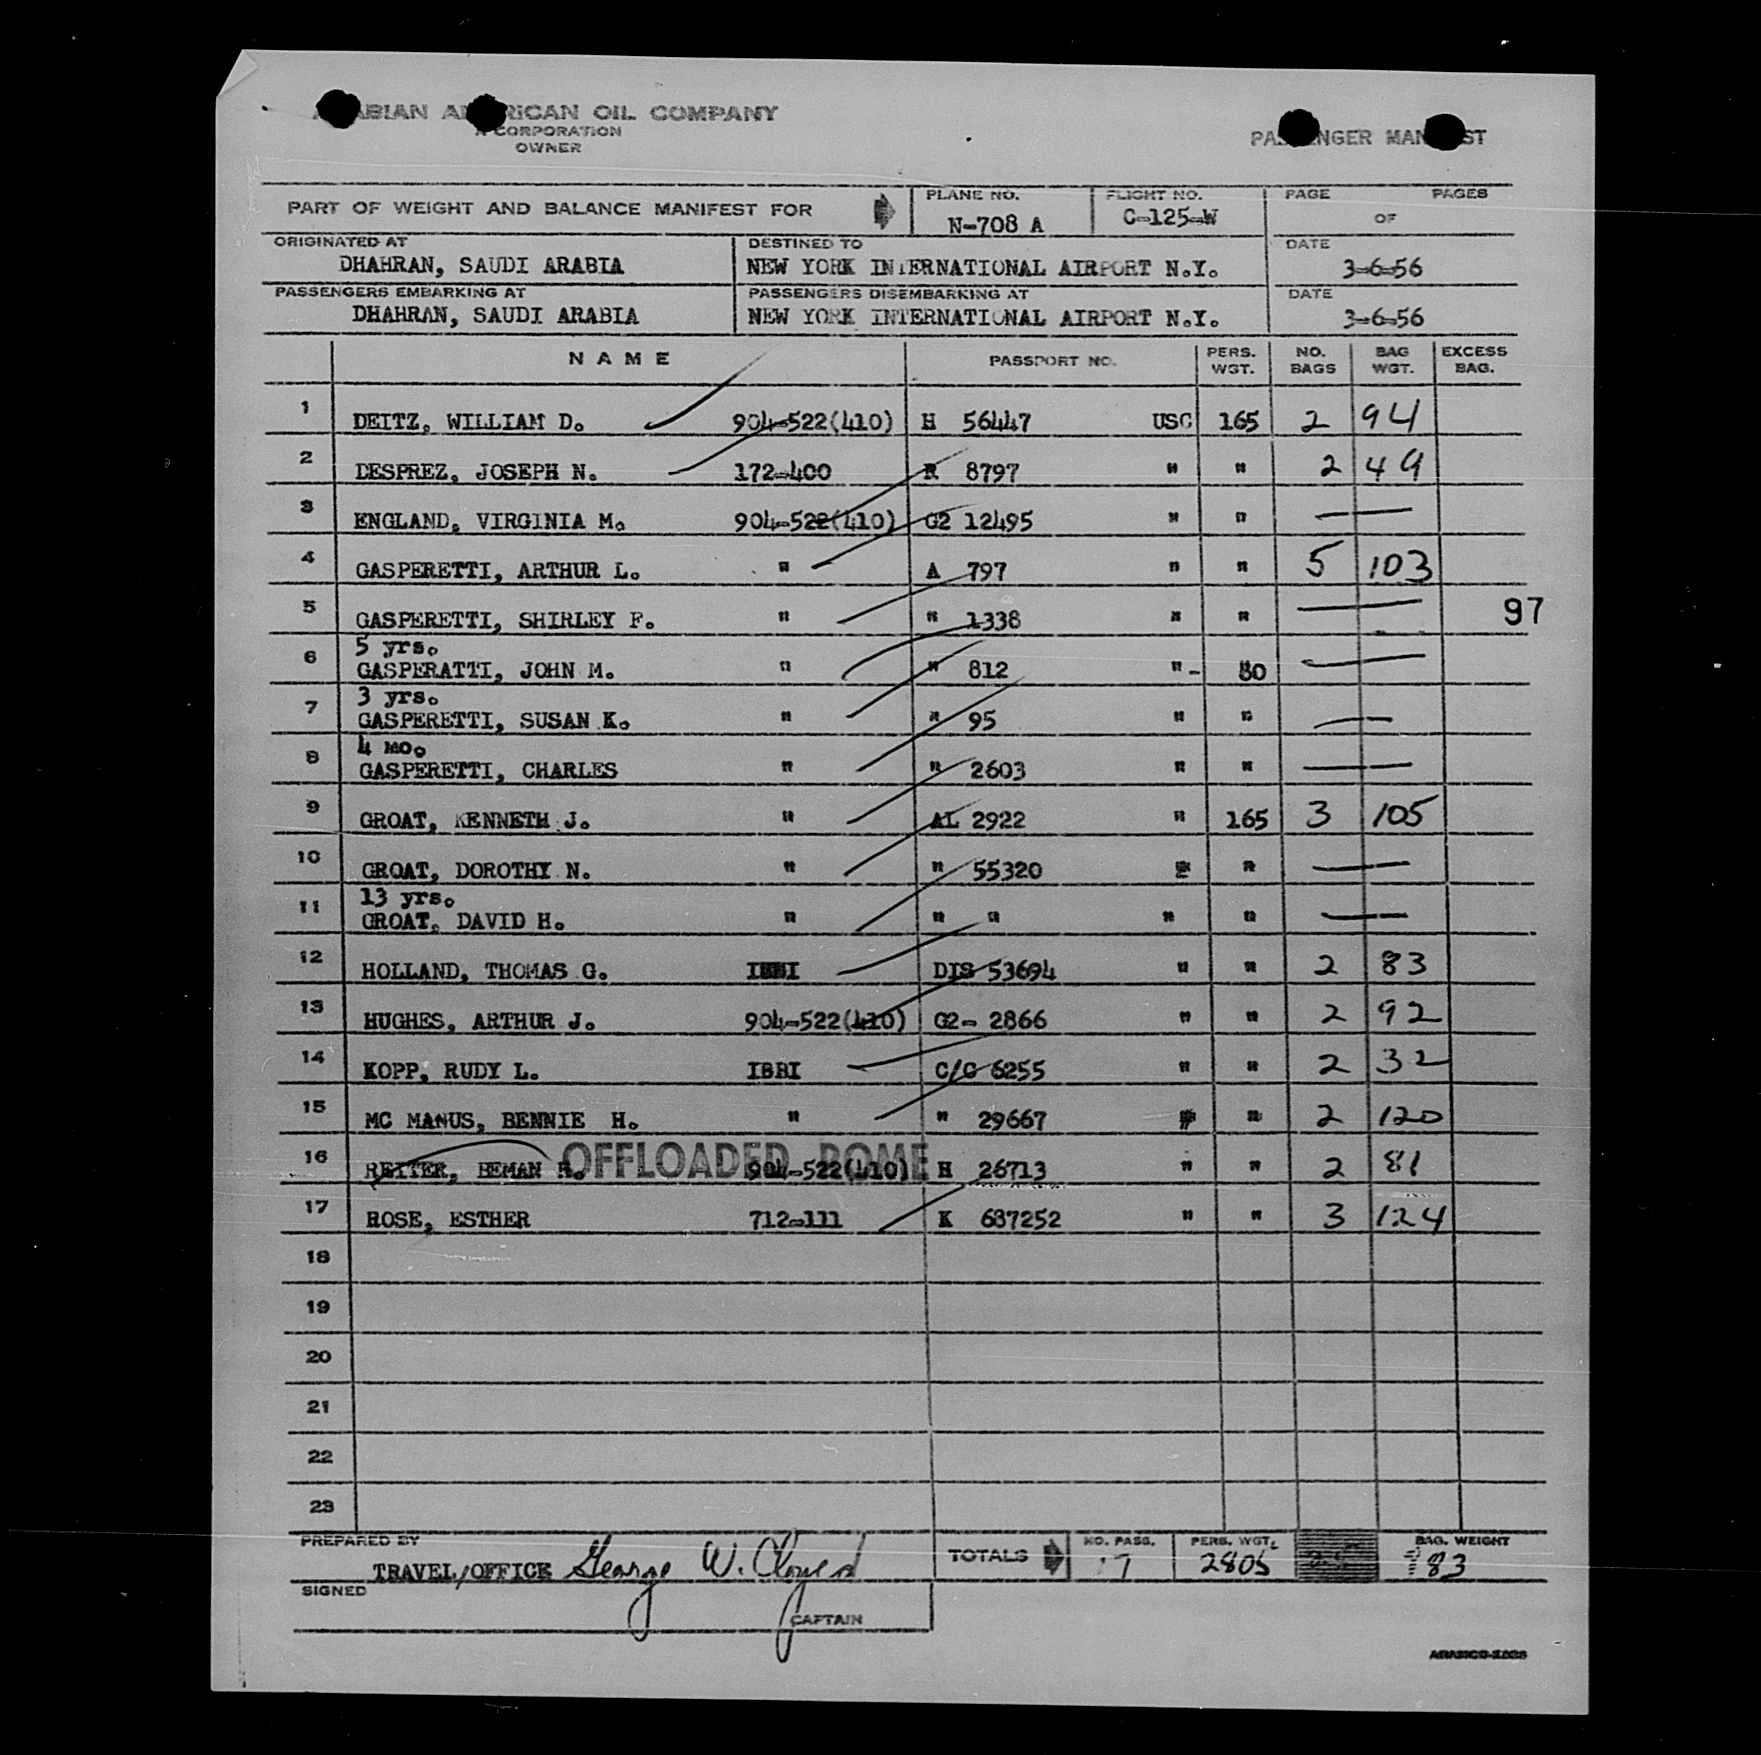 ARABIAN AMERICAN OIL COMPANY
A CORPORATION
OWNER
PASSENGER MANIFEST
PART OF WEIGHT AND BALANCE MANIFEST FOR
PLANE NO. N-708 A
FLIGHT NO. C-125-W
PAGE OF PAGES
ORIGINATED AT DHAHRAN, SAUDI ARABIA
DESTINED TO NEW YORK INTERNATIONAL AIRPORT N.Y.
DATE 3-6-56
PASSENGERS EMBARKING AT DHAHRAN, SAUDI ARABIA
PASSENGERS DISEMBARKING AT NEW YORK INTERNATIONAL AIRPORT N.Y.
DATE 3-6-56
NAME PASSPORT NO. PERS. WGT. NO. BAGS BAG WGT. EXCESS BAG.
1 DEITZ, WILLIAM D. 904-522(410) H 56447 USC 165 2 94
2 DESPREZ, JOSEPH N. 172-400 R 8797 " " 2 49
3 ENGLAND, VIRGINIA M. 904-522(410) G2 12495 " " —
4 GASPERETTI, ARTHUR L. " A 797 " " 5 103
5 GASPERETTI, SHIRLEY F. " " 1338 " " —
97
5 yrs.
6 GASPERATTI, JOHN M. " " 812 " - 80 —
3 yrs.
7 GASPERETTI, SUSAN K. " " 95 " " —
4 mo.
8 GASPERETTI, CHARLES " " 2603 " " —
9 GROAT, KENNETH J. " AL 2922 " 165 3 105
10 GROAT, DOROTHY N. " " 55320 " " —
13 yrs.
11 GROAT, DAVID H. " " " " " —
12 HOLLAND, THOMAS G. IBBI DIS 53694 " " 2 83
13 HUGHES, ARTHUR J. 904-522(410) G2- 2866 " " 2 92
14 KOPP, RUDY L. IBBI C/G 6255 " " 2 32
15 MC MANUS, BENNIE H. " " 29667 " " 2 120
OFFLOADED ROME
16 REITER, BEMAN R. 904-522(410) H 26713 " " 2 81
17 ROSE, ESTHER 712-111 K 637252 " " 3 124
18
19
20
21
22
23
PREPARED BY TRAVEL/OFFICE George W. Cloyed
TOTALS NO. PASS. 17 PERS. WGT. 2805 BAG. WEIGHT 83
SIGNED
CAPTAIN